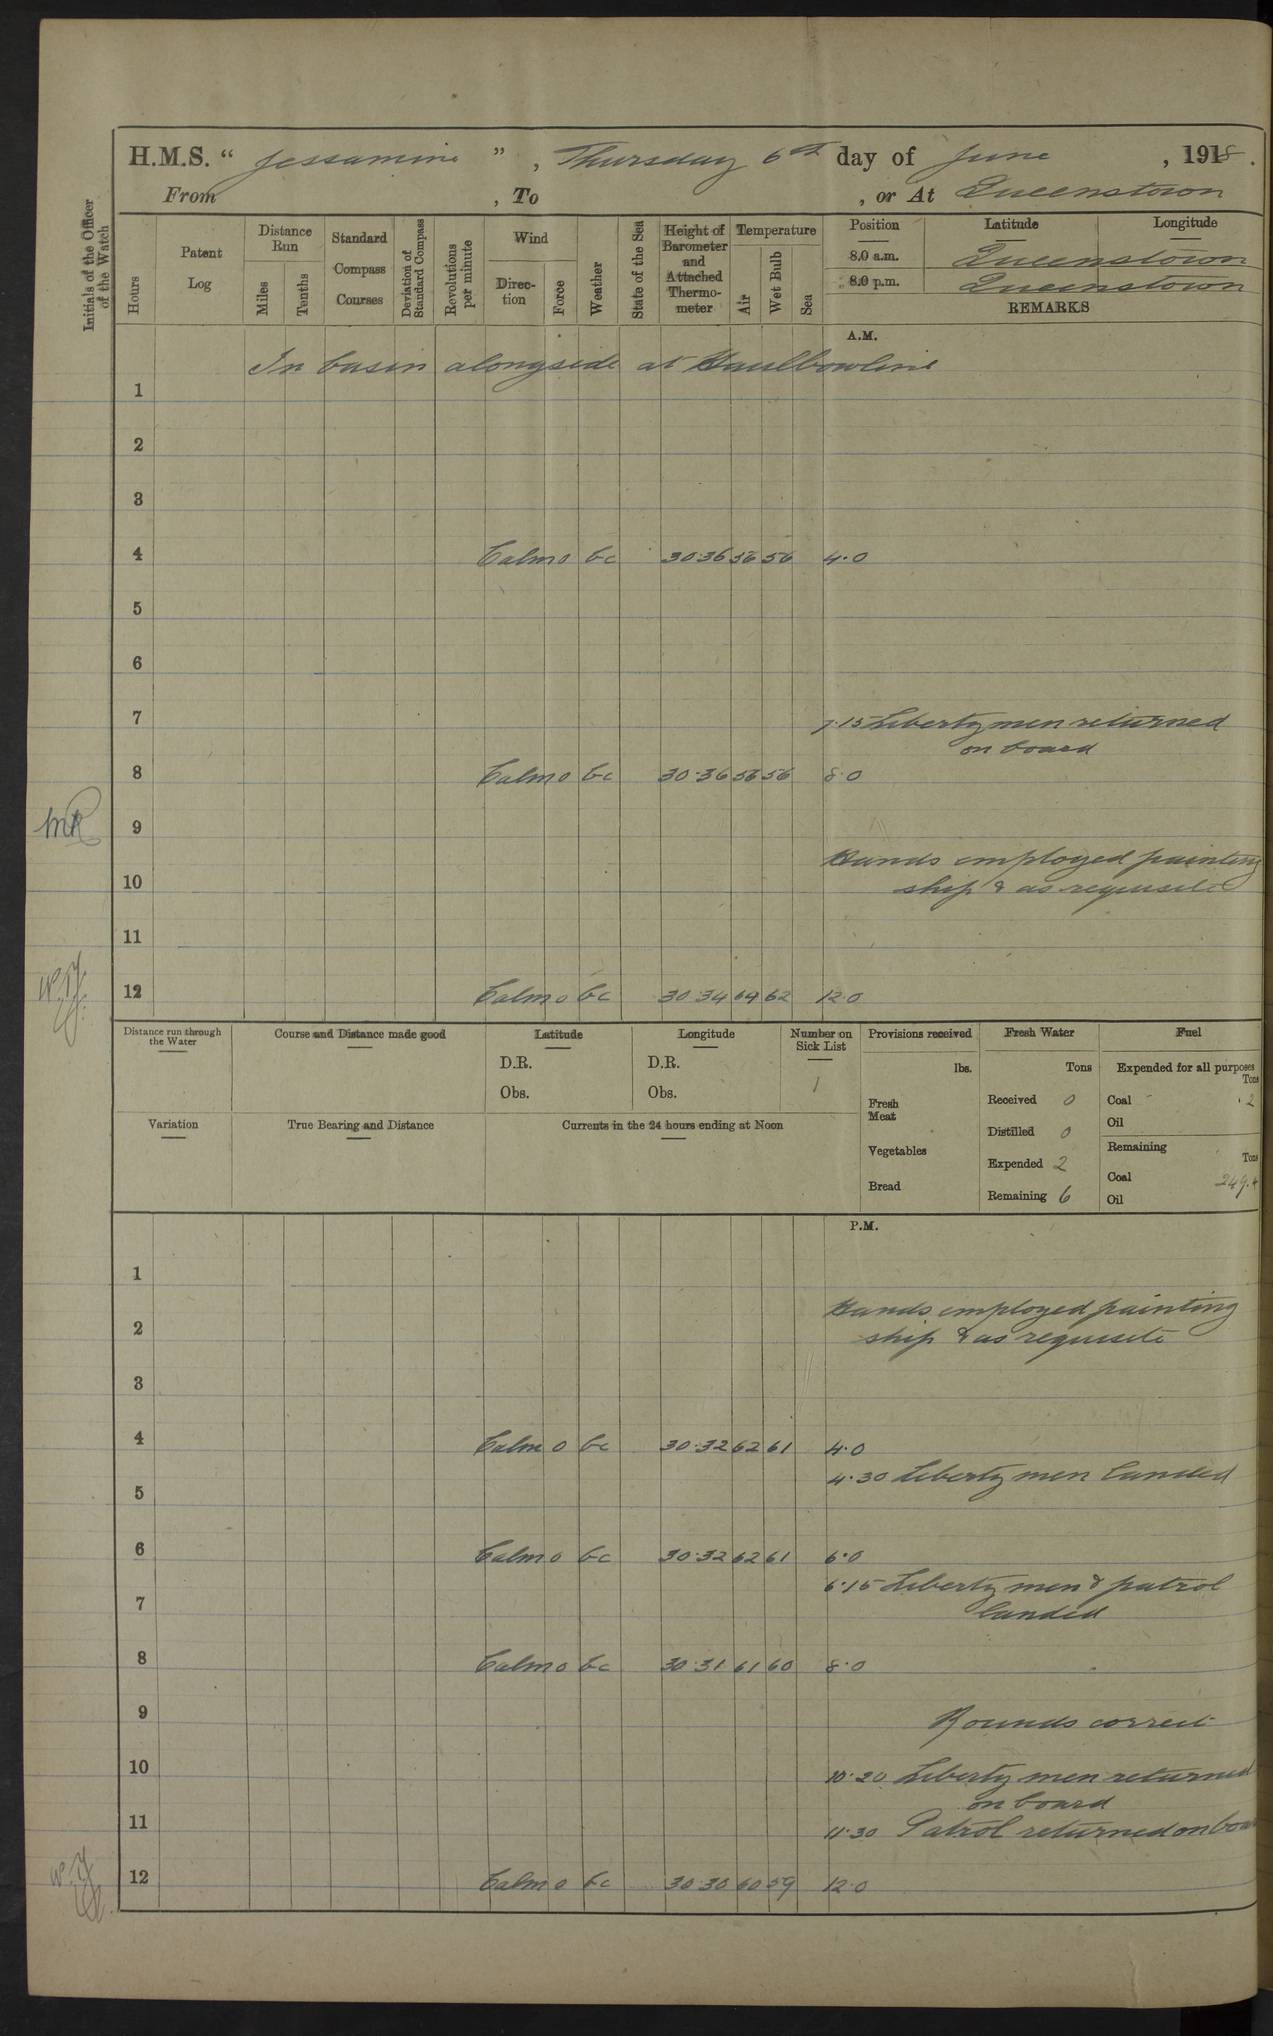 H.M.S. “ Jessamine ” , Thursday 6th day of June , 1918.
From , To , or At Queenstown
Initials of the Officer of the Watch
Hours
Patent Log
Distance Run
Miles
Tenths
Standard Compass Courses
Deviation of Standard Compass
Revolutions per minute
Wind
Direction
Force
Weather
State of the Sea
Height of Barometer and Attached Thermometer
Temperature
Air
Wet Bulb
Sea
Position Latitude Longitude
8.0 a.m. Queenstown
8.0 p.m. Queenstown
REMARKS
A.M.
In basin alongside at Haulbowline
1
2
3
4 Calm 0 bc 30.36 56 56 4.0
5
6
7 7.15 Liberty men returned
on board
8 Calm 0 bc 30.36 56 56 8.0
9
Hands employed painting
10 ship & as requisite
11
12 Calm 0 bc 30.34 64 62 12.0
Distance run through the Water
Course and Distance made good
Latitude
D.R.
Obs.
Longitude
D.R.
Obs.
Number on Sick List
1
Provisions received
lbs.
Fresh Meat
Vegetables
Bread
Fresh Water
Tons
Received 0
Distilled 0
Expended 2
Remaining 6
Fuel
Expended for all purposes
Tons
Coal .2
Oil
Remaining
Tons
Coal
Oil
Variation
True Bearing and Distance
Currents in the 24 hours ending at Noon
P.M.
1
Hands employed painting
2 ship & as requisite
3
4 Calm 0 bc 30.32 62 61 4.0
4.30 Liberty men landed
5
6 Calm 0 bc 30.32 62 61 6.0
6.15 Liberty men & patrol
7 landed
8 Calm 0 bc 30.31 61 60 8.0
9 Rounds correct
10 10.20 Liberty men returned
on board
11 11.30 Patrol returned on board
12 Calm 0 bc 30.30 60 59 12.0